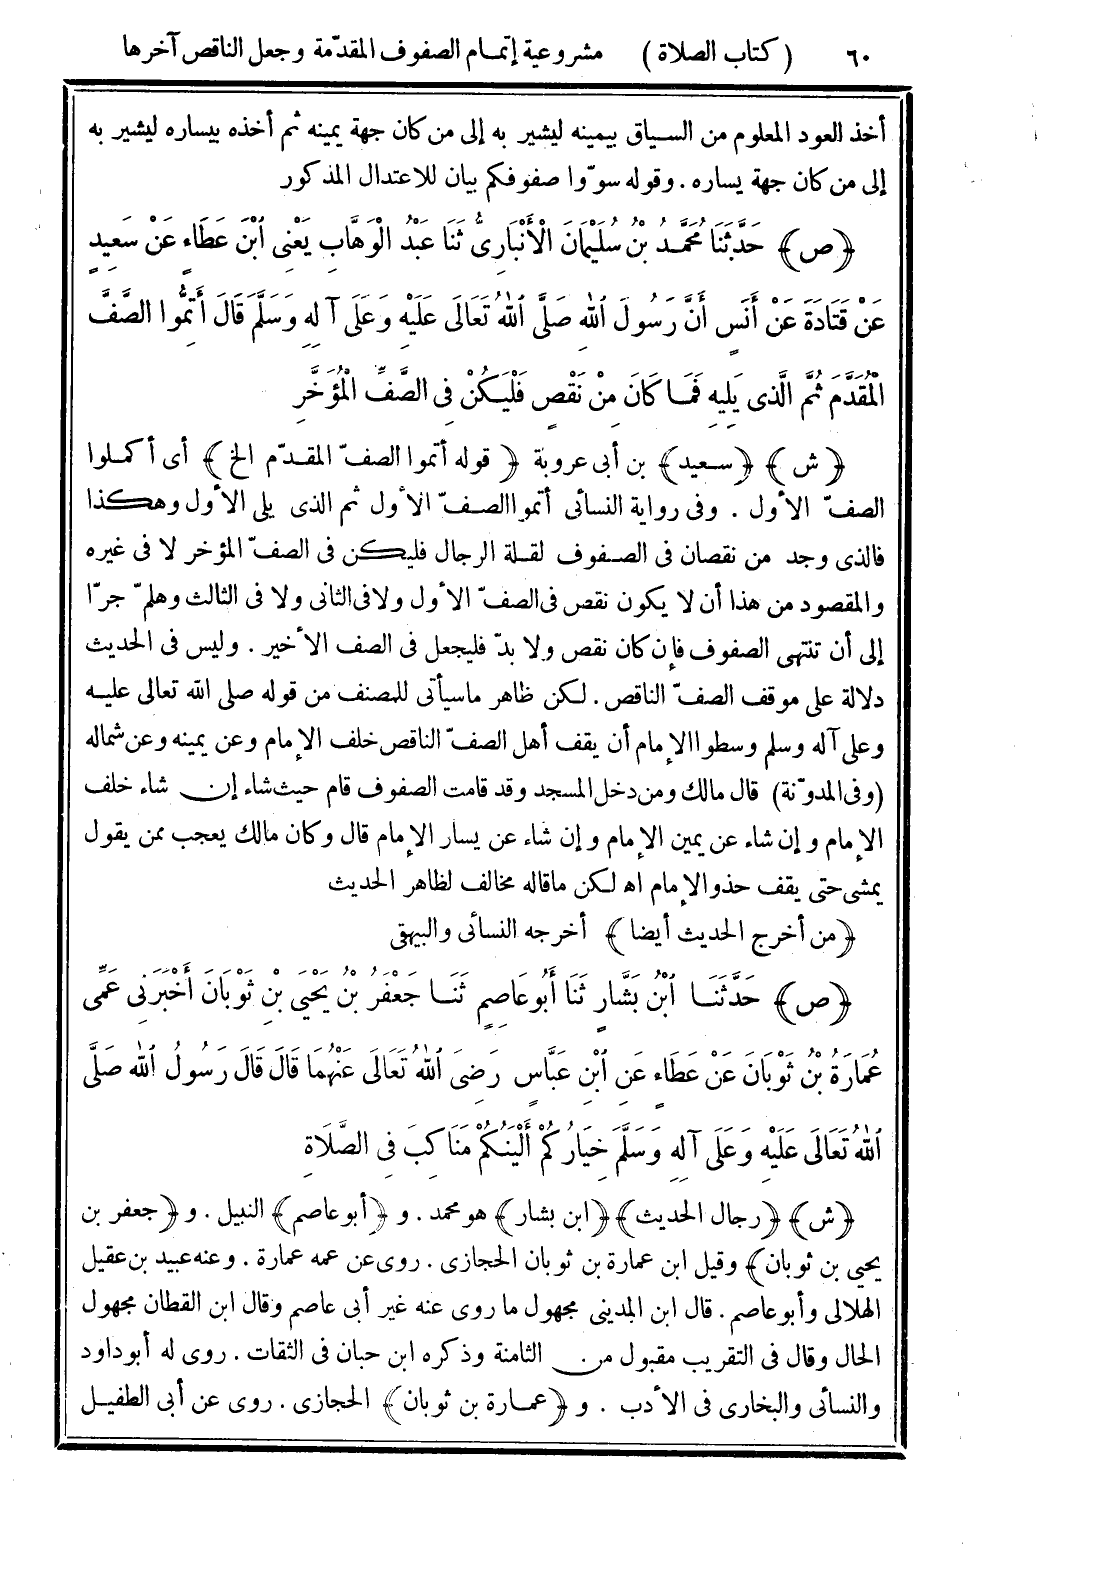 ٦٠ ( كتاب الصلاة ) مشروعية إتمام الصفوف المقدّمة وجعل الناقص آخرها
أخذ العود المعلوم من السياق بيمينه ليشير به إلى من كان جهة يمينه ثم أخذه بيساره ليشير به
إلى من كان جهة يساره . وقوله سوّوا صفوفكم بيان للاعتدال المذكور
﴿ص﴾ حَدَّثَنَا مُحَمَّدُ بْنُ سُلَيْمَانَ الْأَنْبَارِىُّ ثَنَا عَبْدُ الْوَهَّابِ يَعْنِى ابْنَ عَطَاءٍ عَنْ سَعِيدٍ
عَنْ قَتَادَةَ عَنْ أَنَسٍ أَنَّ رَسُولَ اللهِ صَلَّى اللهُ تَعَالَى عَلَيْهِ وَعَلَى آلِهِ وَسَلَّمَ قَالَ أَتِمُّوا الصَّفَّ
الْمُقَدَّمَ ثُمَّ الَّذِى يَلِيهِ فَمَا كَانَ مِنْ نَقْصٍ فَلْيَكُنْ فِى الصَّفِّ الْمُؤَخَّرِ
﴿ش﴾ ﴿سعيد﴾ بن أبى عروبة ﴿قوله أتموا الصفّ المقدّم الخ﴾ أى أكملوا
الصفّ الأول . وفى رواية النسائى أتموا الصفّ الأول ثم الذى يلى الأول وهكذا
فالذى وجد من نقصان فى الصفوف لقلة الرجال فليكن فى الصفّ المؤخر لا فى غيره
والمقصود من هذا أن لا يكون نقص فى الصفّ الأول ولا فى الثانى ولا فى الثالث وهلمّ جرّا
إلى أن تنتهى الصفوف فإن كان نقص ولا بدّ فليجعل فى الصف الأخير . وليس فى الحديث
دلالة على موقف الصفّ الناقص . لكن ظاهر ماسيأتى للمصنف من قوله صلى الله تعالى عليه
وعلى آله وسلم وسطوا الإمام أن يقف أهل الصفّ الناقص خلف الإمام وعن يمينه وعن شماله
(وفى المدوّنة) قال مالك ومن دخل المسجد وقد قامت الصفوف قام حيث شاء إن شاء خلف
الإمام وإن شاء عن يمين الإمام وإن شاء عن يسار الإمام قال وكان مالك يعجب ممن يقول
يمشى حتى يقف حذو الإمام اه لكن ماقاله مخالف لظاهر الحديث
﴿من أخرج الحديث أيضا﴾ أخرجه النسائى والبيهقى
﴿ص﴾ حَدَّثَنَا ابْنُ بَشَّارٍ ثَنَا أَبُو عَاصِمٍ ثَنَا جَعْفَرُ بْنُ يَحْيَى بْنِ ثَوْبَانَ أَخْبَرَنِى عَمِّى
عُمَارَةُ بْنُ ثَوْبَانَ عَنْ عَطَاءٍ عَنِ ابْنِ عَبَّاسٍ رَضِىَ اللهُ تَعَالَى عَنْهُمَا قَالَ قَالَ رَسُولُ اللهِ صَلَّى
اللهُ تَعَالَى عَلَيْهِ وَعَلَى آلِهِ وَسَلَّمَ خِيَارُكُمْ أَلْيَنُكُمْ مَنَاكِبَ فِى الصَّلَاةِ
﴿ش﴾ ﴿رجال الحديث﴾ ﴿ابن بشار﴾ هو محمد . و ﴿أبو عاصم﴾ النبيل . و ﴿جعفر بن
يحيى بن ثوبان﴾ وقيل ابن عمارة بن ثوبان الحجازى . روى عن عمه عمارة . وعنه عبيد بن عقيل
الهلالى وأبو عاصم . قال ابن المدينى مجهول ما روى عنه غير أبى عاصم وقال ابن القطان مجهول
الحال وقال فى التقريب مقبول من الثامنة وذكره ابن حبان فى الثقات . روى له أبو داود
والنسائى والبخارى فى الأدب . و ﴿عمارة بن ثوبان﴾ الحجازى . روى عن أبى الطفيل